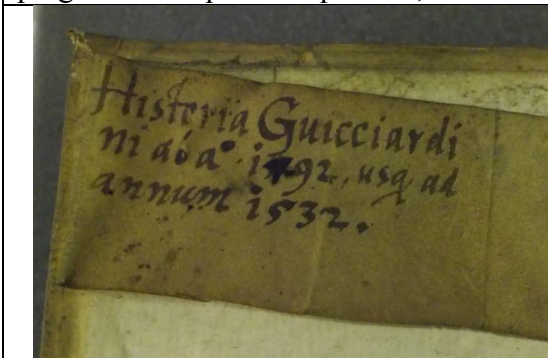 Historia Guicciardi
ni ab aº. 1492. usq; ad
annum 1532.